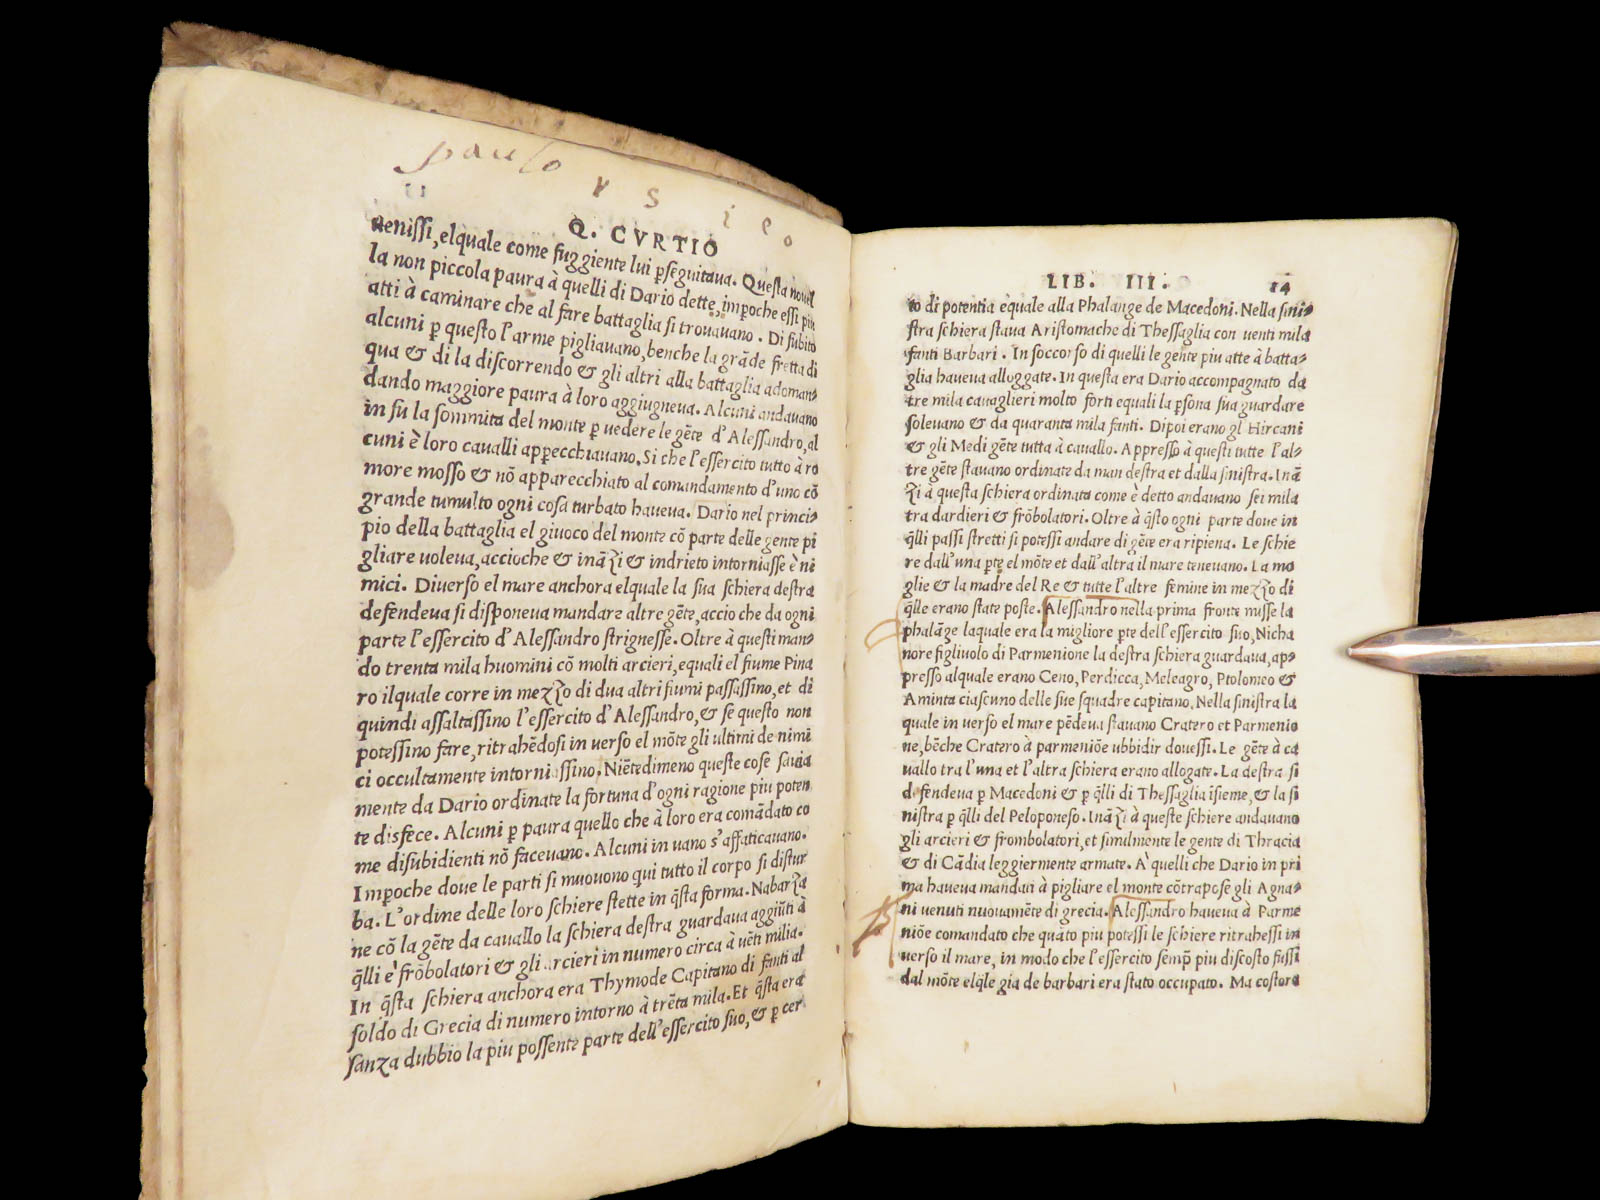 paulo
Q. CVRTIO
uenissi, elquale come fuggiente lui ꝑseguitaua. Questa nouel
la non piccola paura à quelli di Dario dette, imꝑoche essi piu
atti à caminare che al fare battaglia si trouauano. Di subito
alcuni ꝑ questo l'arme pigliauano, benche la grãde fretta di
qua & di la discorrendo & gli altri alla battaglia adoman-
dando maggiore paura à loro aggiugneua. Alcuni andauano
in su la sommita del monte ꝑ uedere le gẽte d'Alessandro, al
cuni è loro caualli apꝑecchiauano. Si che l'essercito tutto à ro
more mosso & nõ apparecchiato al comandamento d'uno cõ
grande tumulto ogni cosa turbato haueua. Dario nel princi-
pio della battaglia el giuoco del monte cõ parte delle gente pi
gliare uoleua, accioche & inãzi & indrieto intorniasse è ni
mici. Diuerso el mare anchora elquale la sua schiera destra
defendeua si disponeua mandare altre gẽte, accio che da ogni
parte l'essercito d'Alessandro strignesse. Oltre à questi man-
do trenta mila huomini cõ molti arcieri, equali el fiume Pina
ro ilquale corre in mezzo di dua altri fiumi passassino, et di
quindi assaltassino l'essercito d'Alessandro, & se questo non
potessino fare, ritrahẽdosi in uerso el mõte gli ultimi de nimi
ci occultamente intorniassino. Niẽtedimeno queste cose sauia
mente da Dario ordinate la fortuna d'ogni ragione piu poten
te disfece. Alcuni ꝑ paura quello che à loro era comãdato co
me disubidienti nõ faceuano. Alcuni in uano s'affaticauano.
Imꝑoche doue le parti si muouono qui tutto il corpo si distur
ba. L'ordine delle loro schiere stette in q̃sta forma. Nabarza
ne cõ la gẽte da cauallo la schiera destra guardaua aggiũti à
q̃lli è frõbolatori & gli arcieri in numero circa à uẽti milia.
In q̃sta schiera anchora era Thymode Capitano di fanti al
soldo di Grecia di numero intorno à trẽta mila. Et q̃sta era
sanza dubbio la piu possente parte dell'essercito suo, & ꝑ cer
LIB. III. 14
to di potentia equale alla Phalange de Macedoni. Nella sini-
stra schiera staua Aristomache di Thessaglia con uenti mila
fanti Barbari. In soccorso di quelli le gente piu atte à batta-
glia haueua alloggate. In questa era Dario accompagnato da
tre mila cauaglieri molto forti equali la ꝑsona sua guardare
soleuano & da quaranta mila fanti. Dipoi erano gl' Hircani
& gli Medi gẽte tutta à cauallo. Appresso à questi tutte l'al-
tre gẽte stauano ordinate da man destra et dalla sinistra. Inã
zi à questa schiera ordinata come è detto andauano sei mila
tra dardieri & frõbolatori. Oltre à q̃sto ogni parte doue in
q̃lli passi stretti si potessi andare di gẽte era ripiena. Le schie
re dall'una ꝑte el mõte et dall'altra il mare teneuano. La mo
glie & la madre del Re & tutte l'altre femine in mezzo di
q̃lle erano state poste. Alessandro nella prima fronte misse la
phalãge laquale era la migliore ꝑte dell'essercito suo, Nicha
nore figliuolo di Parmenione la destra schiera guardaua, ap-
presso alquale erano Ceno, Perdicca, Meleagro, Ptolomeo &
Aminta ciascuno delle sue squadre capitano. Nella sinistra la
quale in uerso el mare pẽdeua stauano Cratero et Parmenio
ne, bẽche Cratero à parmeniõe ubbidir douessi. Le gẽte à ca
uallo tra l'una et l'altra schiera erano allogate. La destra si
defendeua ꝑ Macedoni & ꝑ q̃lli di Thessaglia ĩsieme, & la si
nistra ꝑ q̃lli del Peloponeso. Inãzi à queste schiere andauano
gli arcieri & frombolatori, et similmente le gente di Thracia
& di Cãdia leggiermente armate. A' quelli che Dario in pri
ma haueua mandati à pigliare el monte cõtrapose gli Agna-
ni uenuti nuouamẽte di grecia. Alessandro haueua à Parme
niõe comandato che quãto piu potessi le schiere ritrahessi in
uerso il mare, in modo che l'essercito semp̃ piu discosto fussi
dal mõte elq̃le gia de barbari era stato occupato. Ma costoro